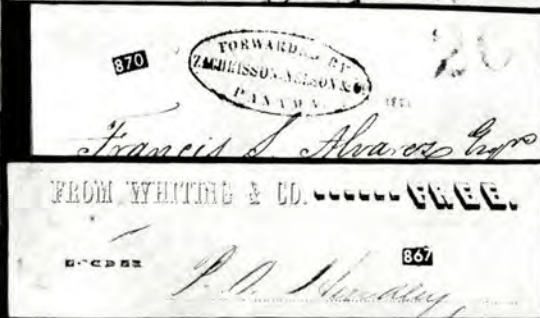 870
FORWARDED BY
ZACHRISSON, NELSON & Co
PANAMA
20
Francis S. Alvarez Esqre
FROM WHITING & CO. FREE.
867